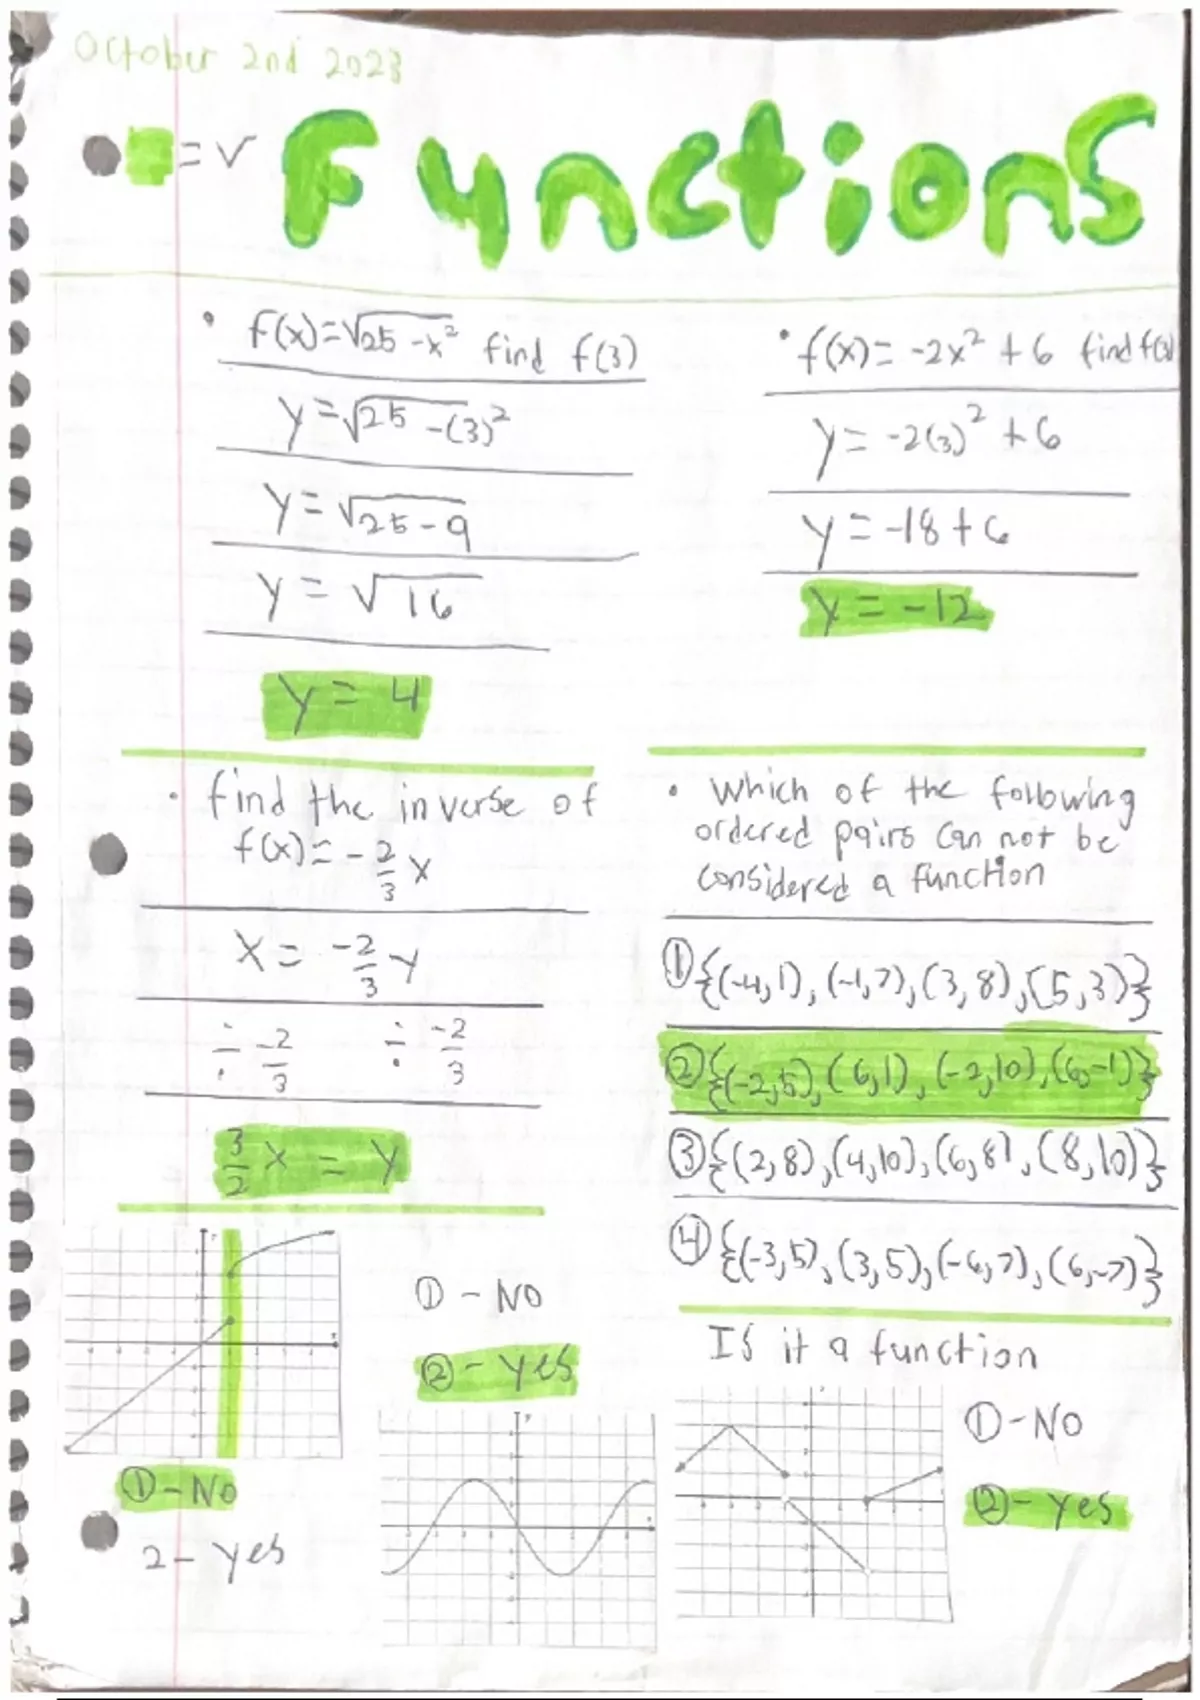 October 2nd 2023
= √ Functions
• f(x)=√25-x² find f(3)
y=√25-(3)²
y=√25-9
y=√16
y=4
• f(x)=-2x²+6 find f(3)
y=-2(3)²+6
y=-18+6
y=-12
• find the inverse of
f(x)=-2/3 x
x=-2/3 y
÷ -2/3 ÷ -2/3
3/2 x = y
• Which of the following
ordered pairs can not be
considered a function
① {(-4,1),(-1,7),(3,8),(5,3)}
② {(-2,5),(6,1),(-2,10),(6,-1)}
③ {(2,8),(4,10),(6,8),(8,10)}
④ {(-3,5),(3,5),(-6,7),(6,-7)}
Is it a function
①-No
2-yes
①-No
②-yes
①-No
②-yes